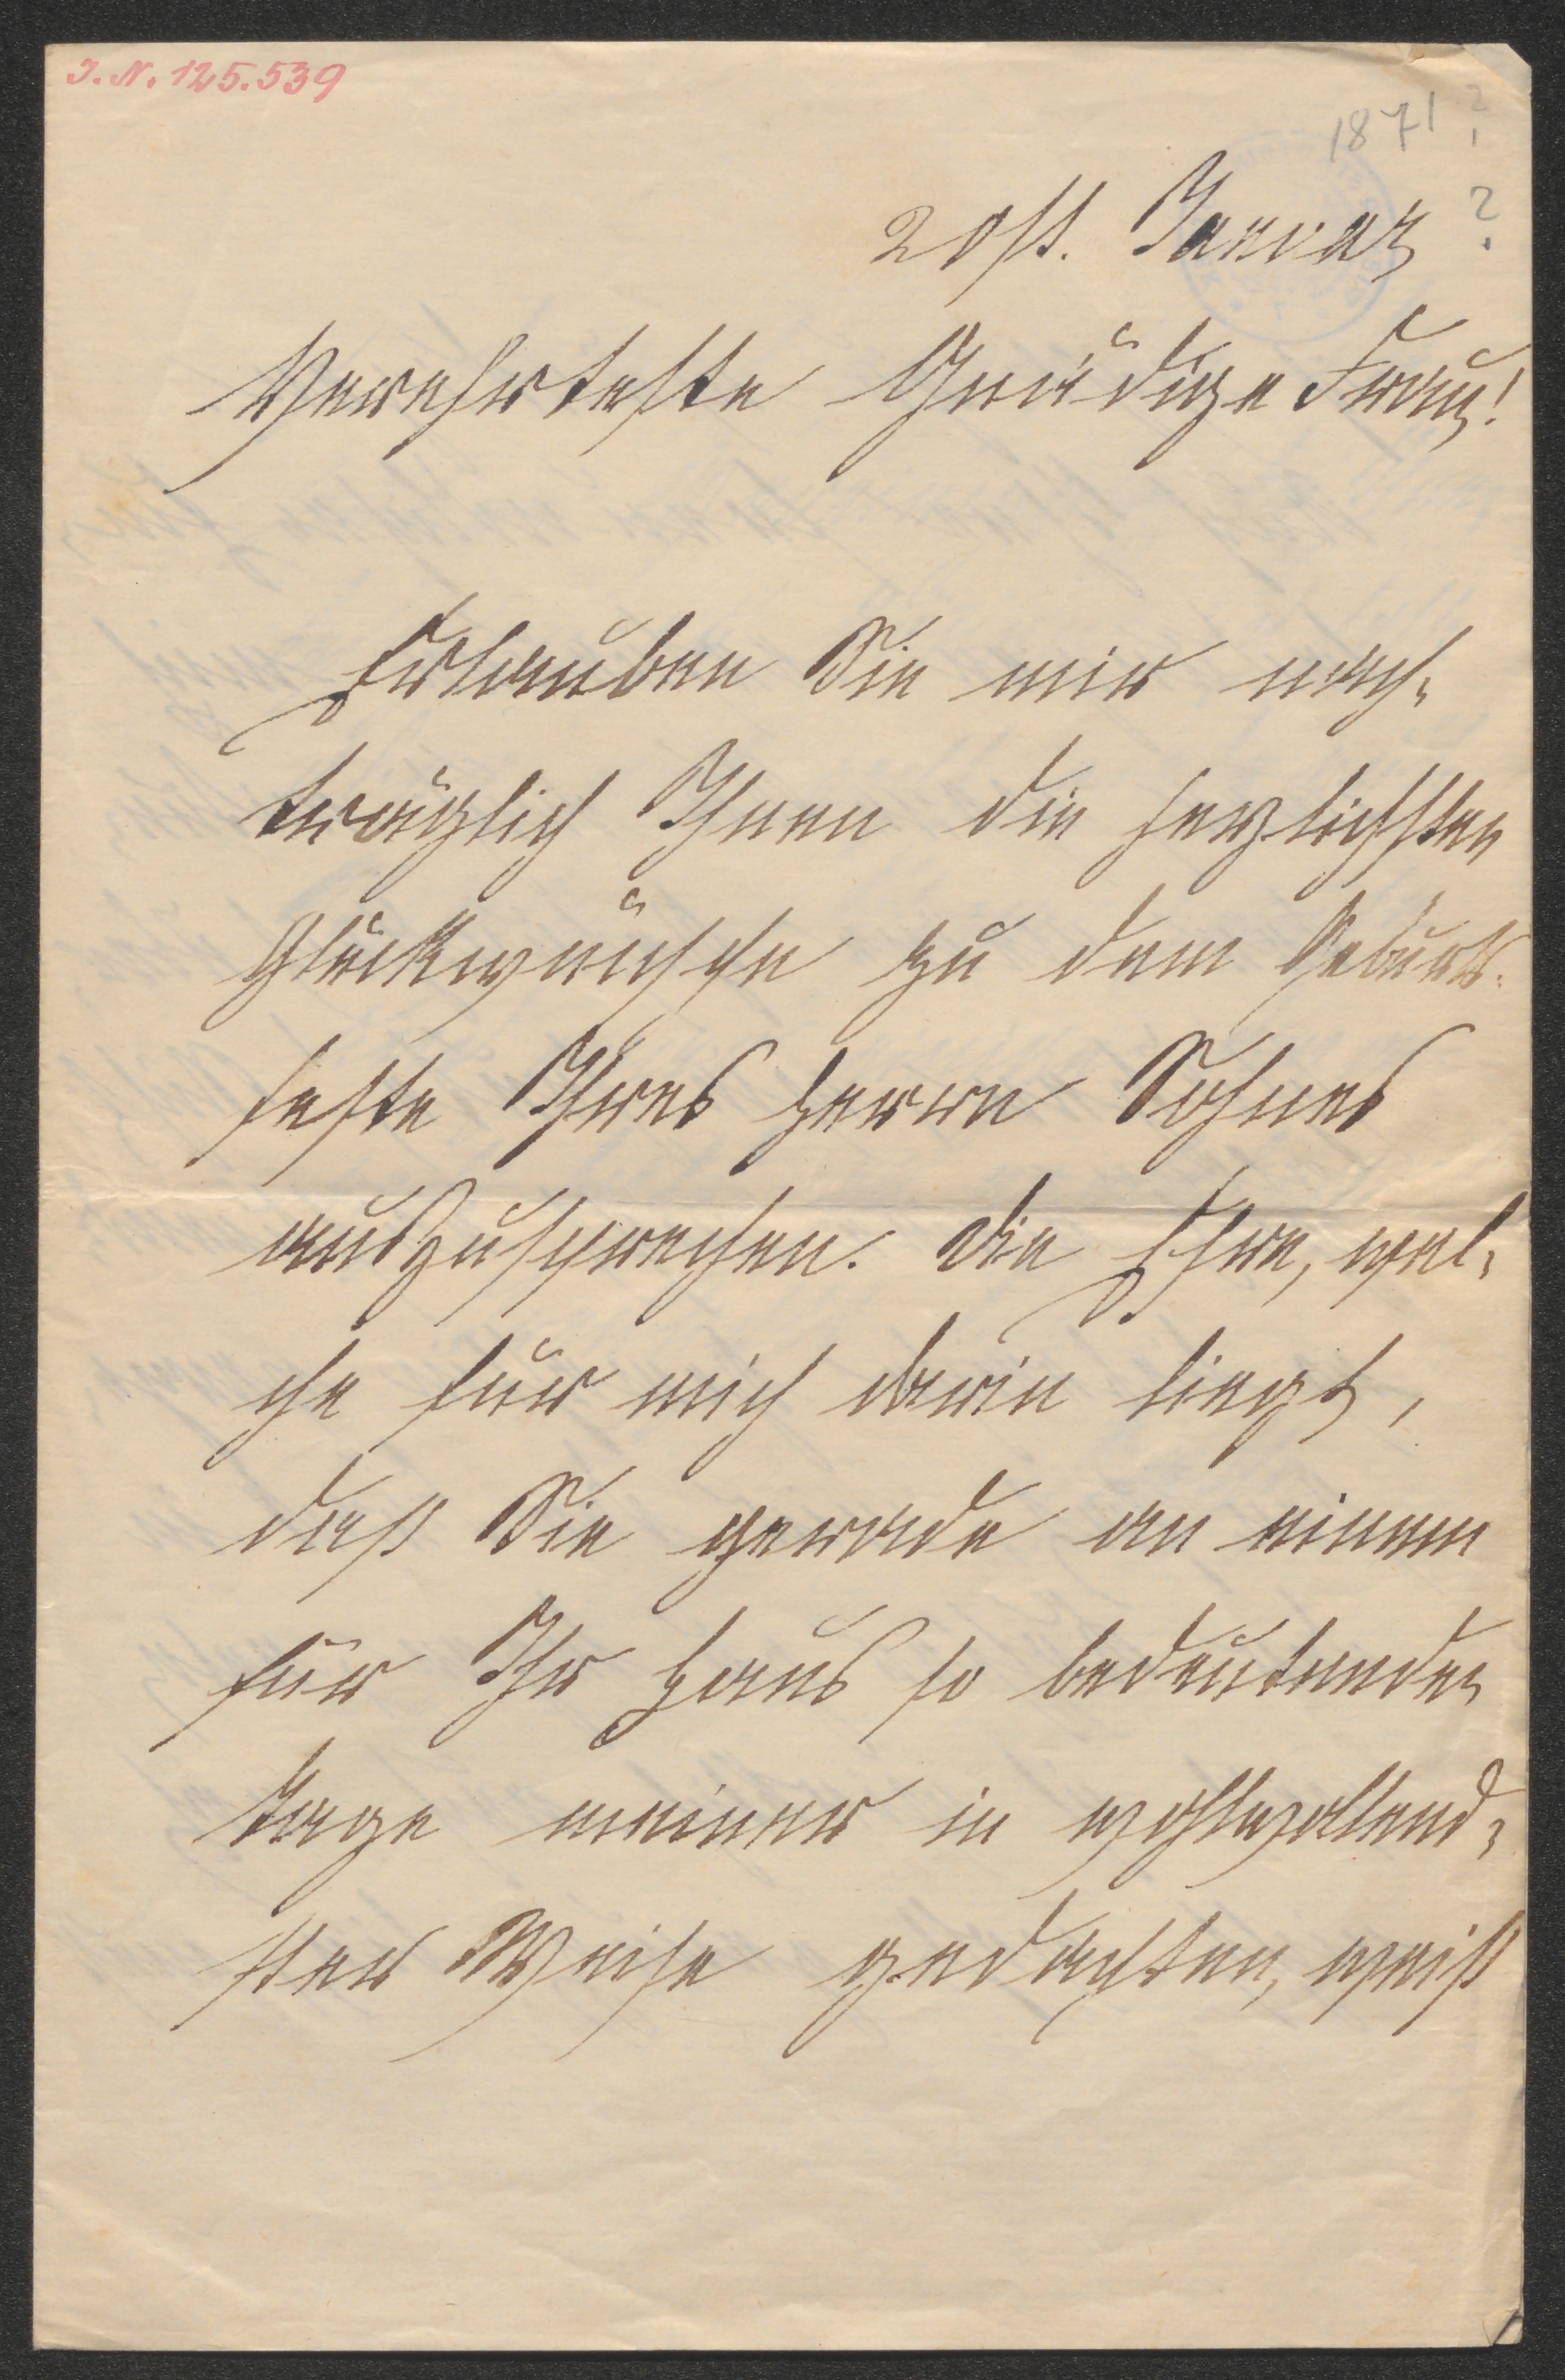 J. N. 125.539
1871 ?
20st. Januar ?
Verehrteste Gnädige Frau!
Erlauben Sie mir nach-
träglich Ihnen die herzlichsten
Glückwünsche zu dem Geburts-
feste Ihres Herrn Sohnes
auszusprechen. Die Ehre, wel-
che für mich darin liegt,
daß Sie gerade an einem
für Ihr Haus so bedeutenden
Tage meiner in wohlwollend-
ster Weise gedachten, weiß